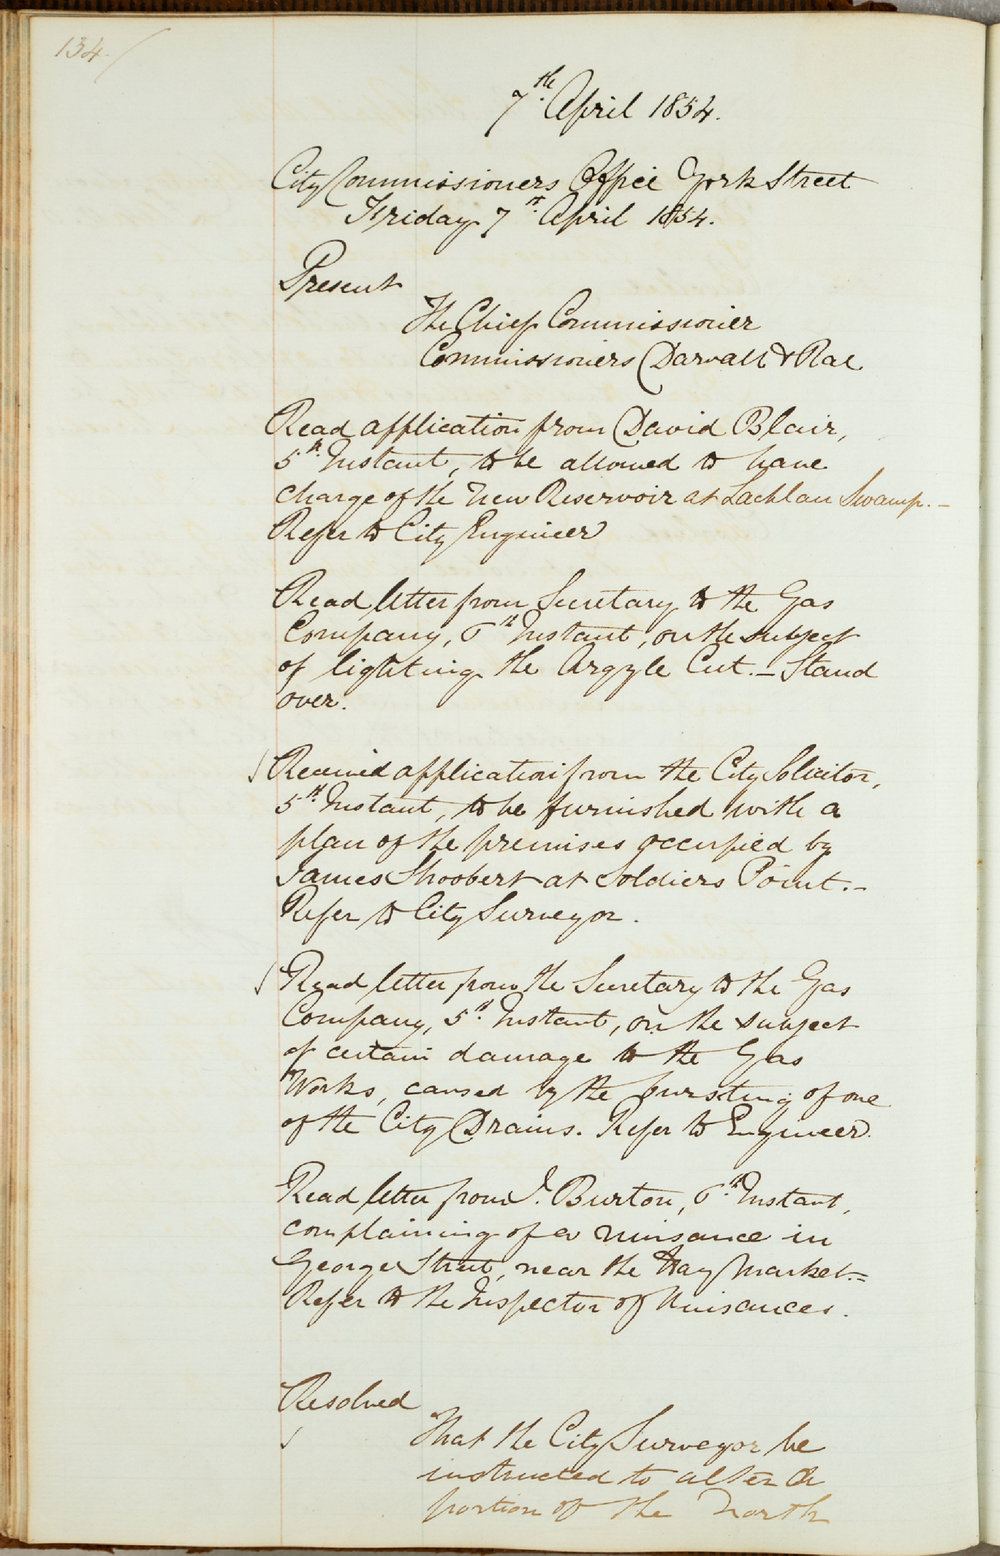 134.
7th. April 1854.
City Commissioners Office York Street
Friday 7th. April 1854.
Present
The Chief Commissioner
Commissioners Darvall & Rae
Read application from David Blair,
5th Instant, to be allowed to have
charge of the New Reservoir at Lachlan Swamp.—
Refer to City Engineer
Read letter from Secretary to the Gas
Company, 6th Instant, on the subject
of lighting the Argyle Cut.— Stand
over.
Received application from the City Solicitor,
5th. Instant, to be furnished with a
plan of the premises occupied by
James Shoobert at Soldiers Point.—
Refer to City Surveyor.
Read letter from the Secretary to the Gas
Company, 5th. Instant, on the subject
of certain damage to the Gas
Works, caused by the bursting of one
of the City Drains. Refer to Engineer.
Read letter from J. Burton, 6th. Instant,
complaining of a nuisance in
George Street, near the Hay Market.=
Refer to the Inspector of Nuisances.
Resolved
That the City Surveyor be
instructed to alter a
portion of the North